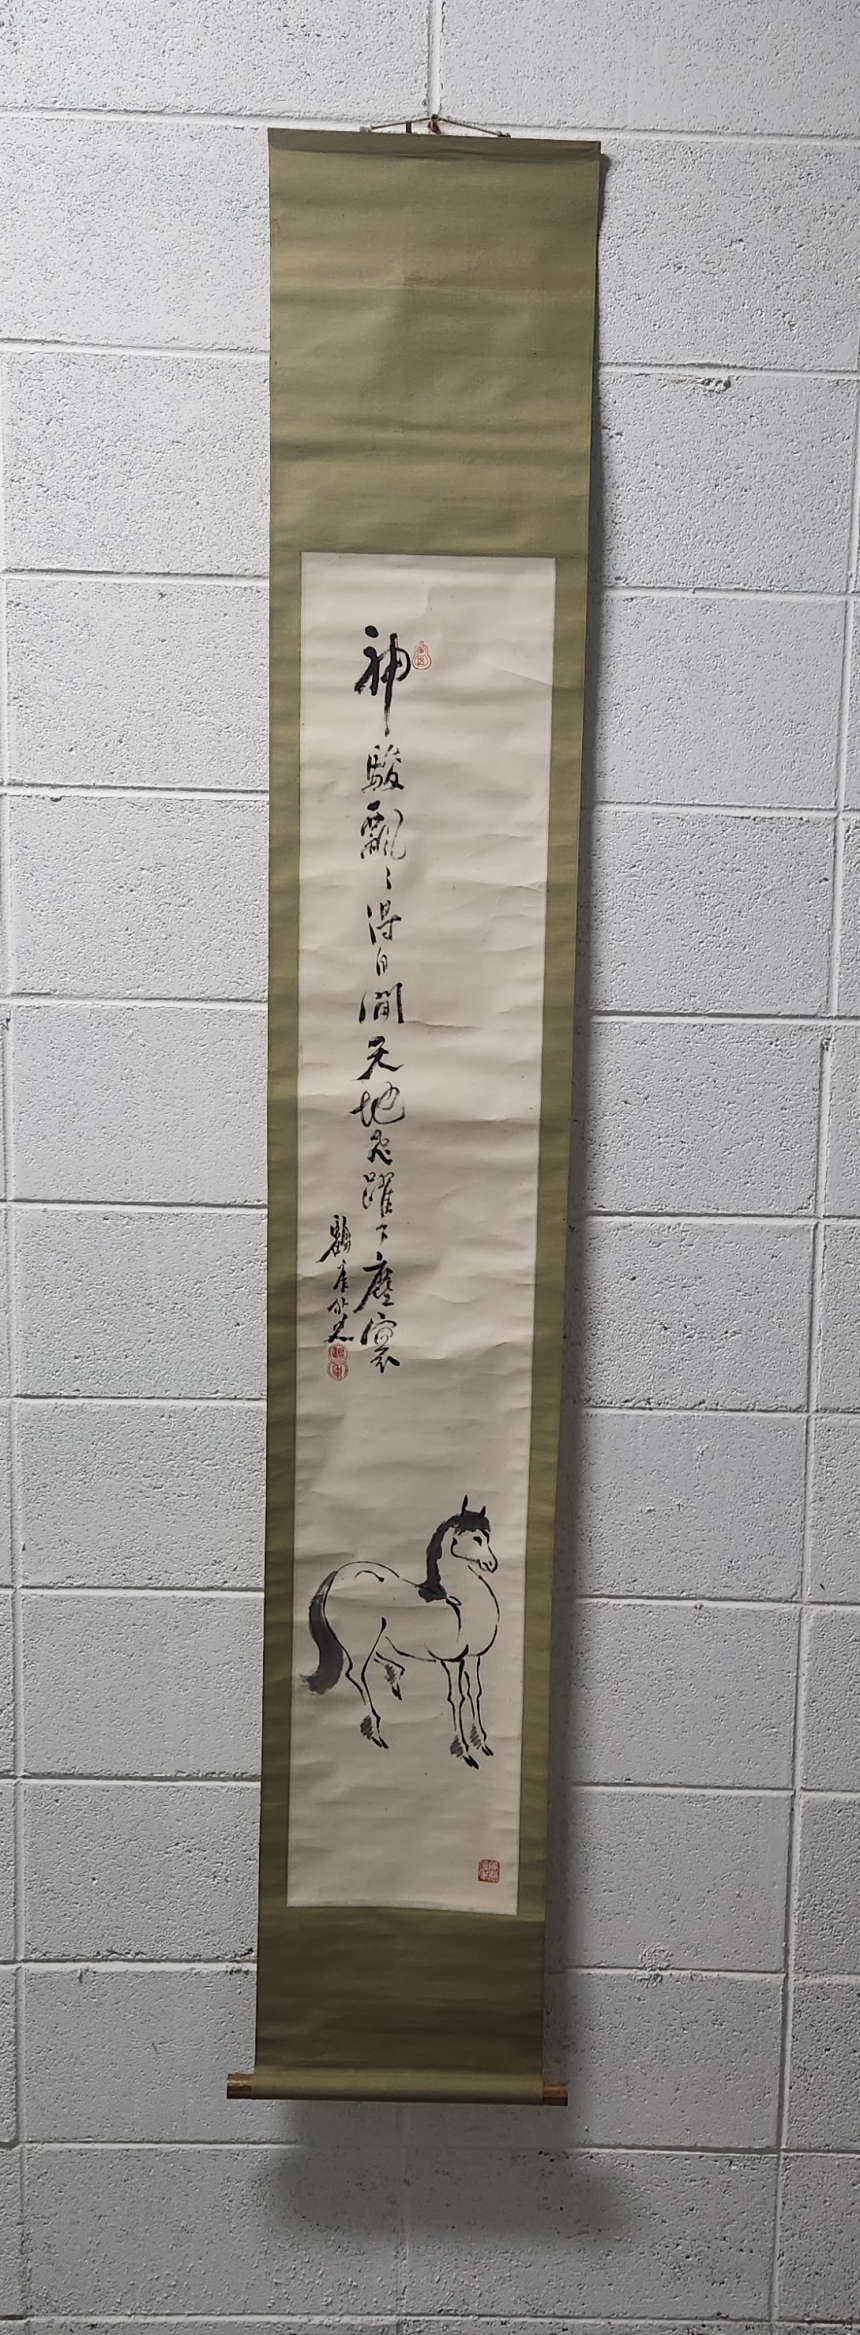 神駿飄〻得自閒天地飛躍下塵寰